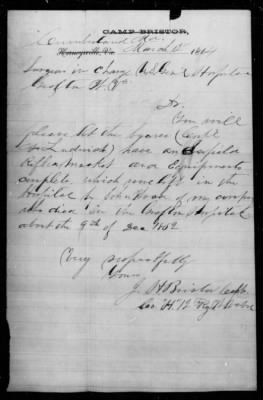 CAMP BRISTOR,
Cumberland Md.
Romneyville, Va. March 1864
Surgeon in Charge Genl Hospital
Grafton W. Va.
Sir.
You will
please let the bearer (Corpl
Ludwick) have an Enfield
Rifle musket and Equipments
complete, which was left in the
hospital by John of my company
who died in the Grafton Hospital
about the 9th of Dec 1862
Very respectfully
Yours,
J. H. Bristor Capt
Co. "H" 12 Regt W. Va.